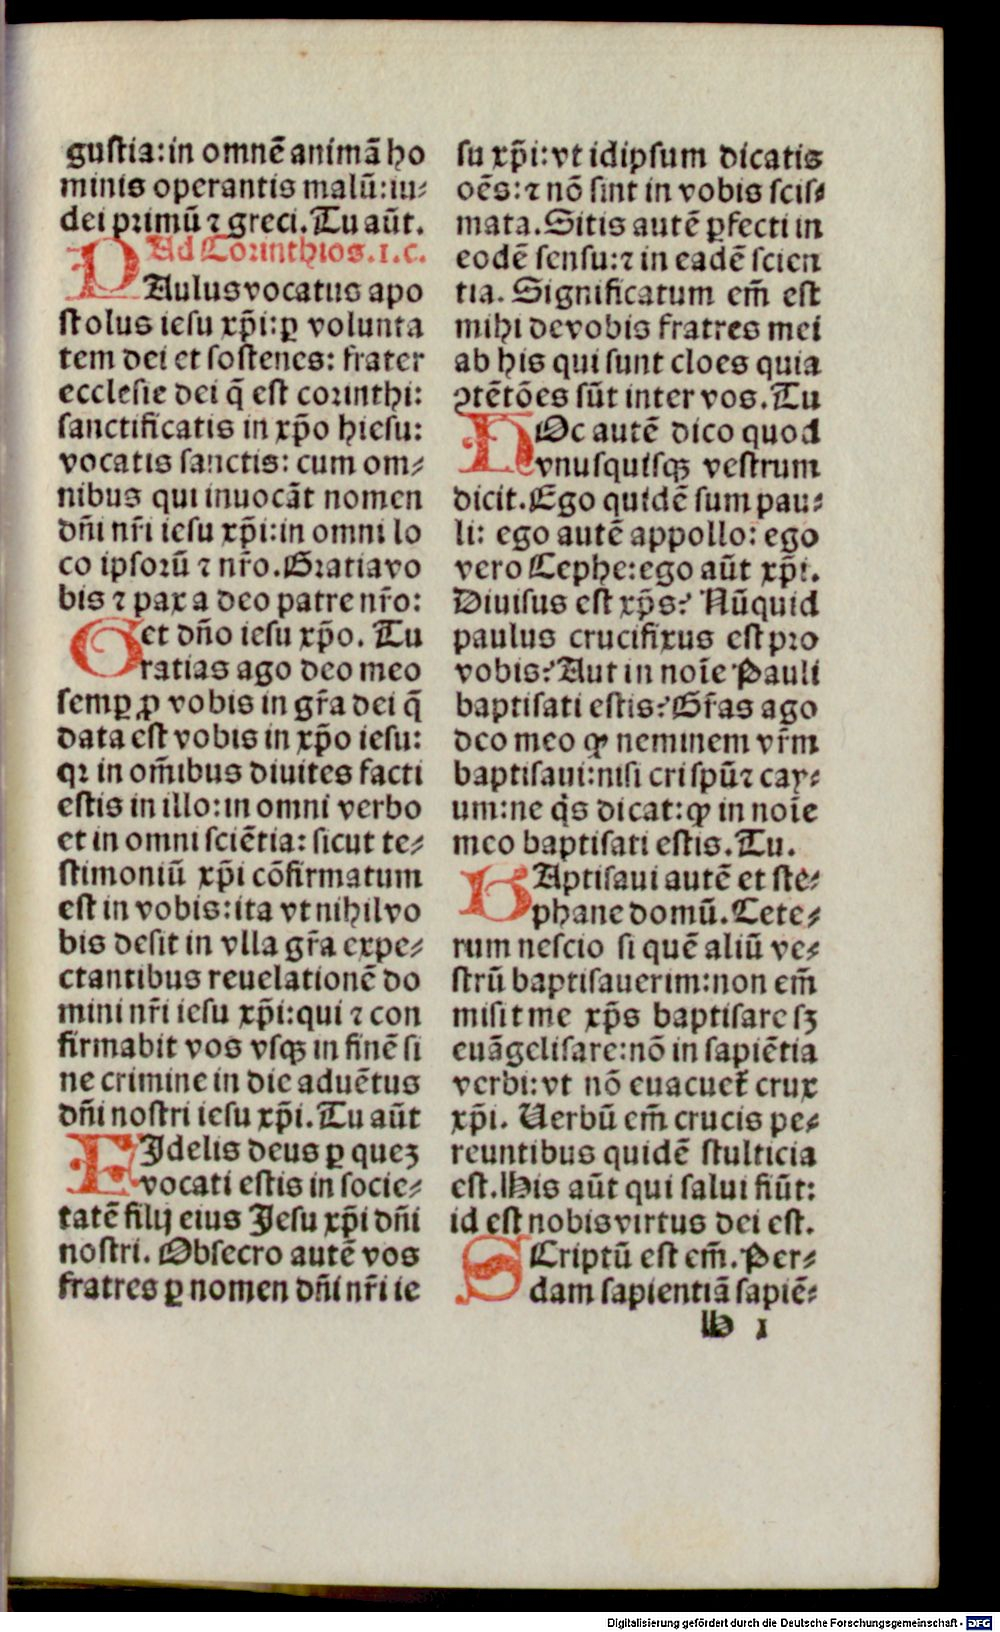 gustia: in omnē animā ho
minis operantis malū: iu⸗
dei primū ⁊ greci. Tu aūt.
Ad Corinthios .1. c.
PAulus vocatus apo
stolus iesu xp̄i: ꝑ volunta
tem dei et sostenes: frater
ecclesie dei q̄ est corinthi:
sanctificatis in xp̄o hiesu:
vocatis sanctis: cum om⸗
nibus qui inuocāt nomen
dn̄i nr̄i iesu xp̄i: in omni lo
co ipsorū ⁊ nr̄o. Gratia vo
bis ⁊ pax a deo patre nr̄o:
et dn̄o iesu xp̄o. Tu
Gratias ago deo meo
semꝑ ꝓ vobis in gr̄a dei q̄
data est vobis in xp̄o iesu:
qꝛ in om̄ibus diuites facti
estis in illo: in omni verbo
et in omni sciētia: sicut te⸗
stimoniū xp̄i cōfirmatum
est in vobis: ita vt nihil vo
bis desit in vlla gr̄a expe⸗
ctantibus reuelationē do
mini nr̄i iesu xp̄i: qui ⁊ con
firmabit vos vsqꝫ in finē si
ne crimine in die aduētus
dn̄i nostri iesu xp̄i. Tu aūt
FIdelis deus ꝑ queꝫ
vocati estis in socie⸗
tatē filij eius Jesu xp̄i dn̄i
nostri. Obsecro autē vos
fratres ꝑ nomen dn̄i nr̄i ie
su xp̄i: vt idipsum dicatis
oēs: ⁊ nō sint in vobis scis⸗
mata. Sitis autē ꝑfecti in
eodē sensu: ⁊ in eadē scien
tia. Significatum em̄ est
mihi de vobis fratres mei
ab his qui sunt cloes quia
ↄtētōes sūt inter vos. Tu
HOc autē dico quod
vnusquisqꝫ vestrum
dicit. Ego quidē sum pau⸗
li: ego autē appollo: ego
vero Cephe: ego aūt xp̄i.
Diuisus est xp̄s? Nūquid
paulus crucifixus est pro
vobis? Aut in noīe Pauli
baptisati estis? Gr̄as ago
deo meo ꝙ neminem vr̄m
baptisaui: nisi crispū ⁊ cay⸗
um: ne q̇s dicat: ꝙ in noīe
meo baptisati estis. Tu.
BAptisaui autē et ste⸗
phane domū. Cete⸗
rum nescio si quē aliū ve⸗
strū baptisauerim: non em̄
misit me xp̄s baptisare sꝫ
euāgelisare: nō in sapiētia
verbi: vt nō euacuet̄ crux
xp̄i. Verbū em̄ crucis pe⸗
reuntibus quidē stulticia
est. His aūt qui salui fiūt:
id est nobis virtus dei est.
SCriptū est em̄. Per⸗
dam sapientiā sapiē⸗
H 1
Digitalisierung gefördert durch die Deutsche Forschungsgemeinschaft - DFG